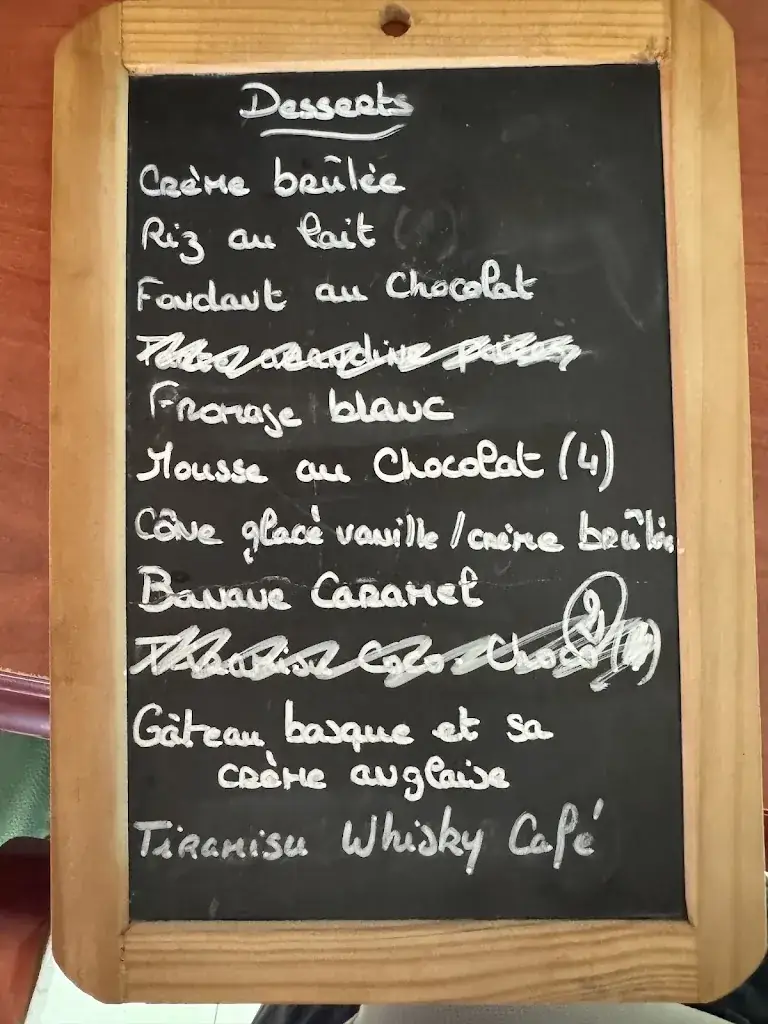 Desserts
Crème brûlée
Riz au lait
Fondant au Chocolat
Fromage blanc
Mousse au Chocolat (4)
Cône glacé vanille / crème brûlée
Banane Caramel
Tiramisu Coco-Choco
Gâteau basque et sa
crème anglaise
Tiramisu Whisky Café